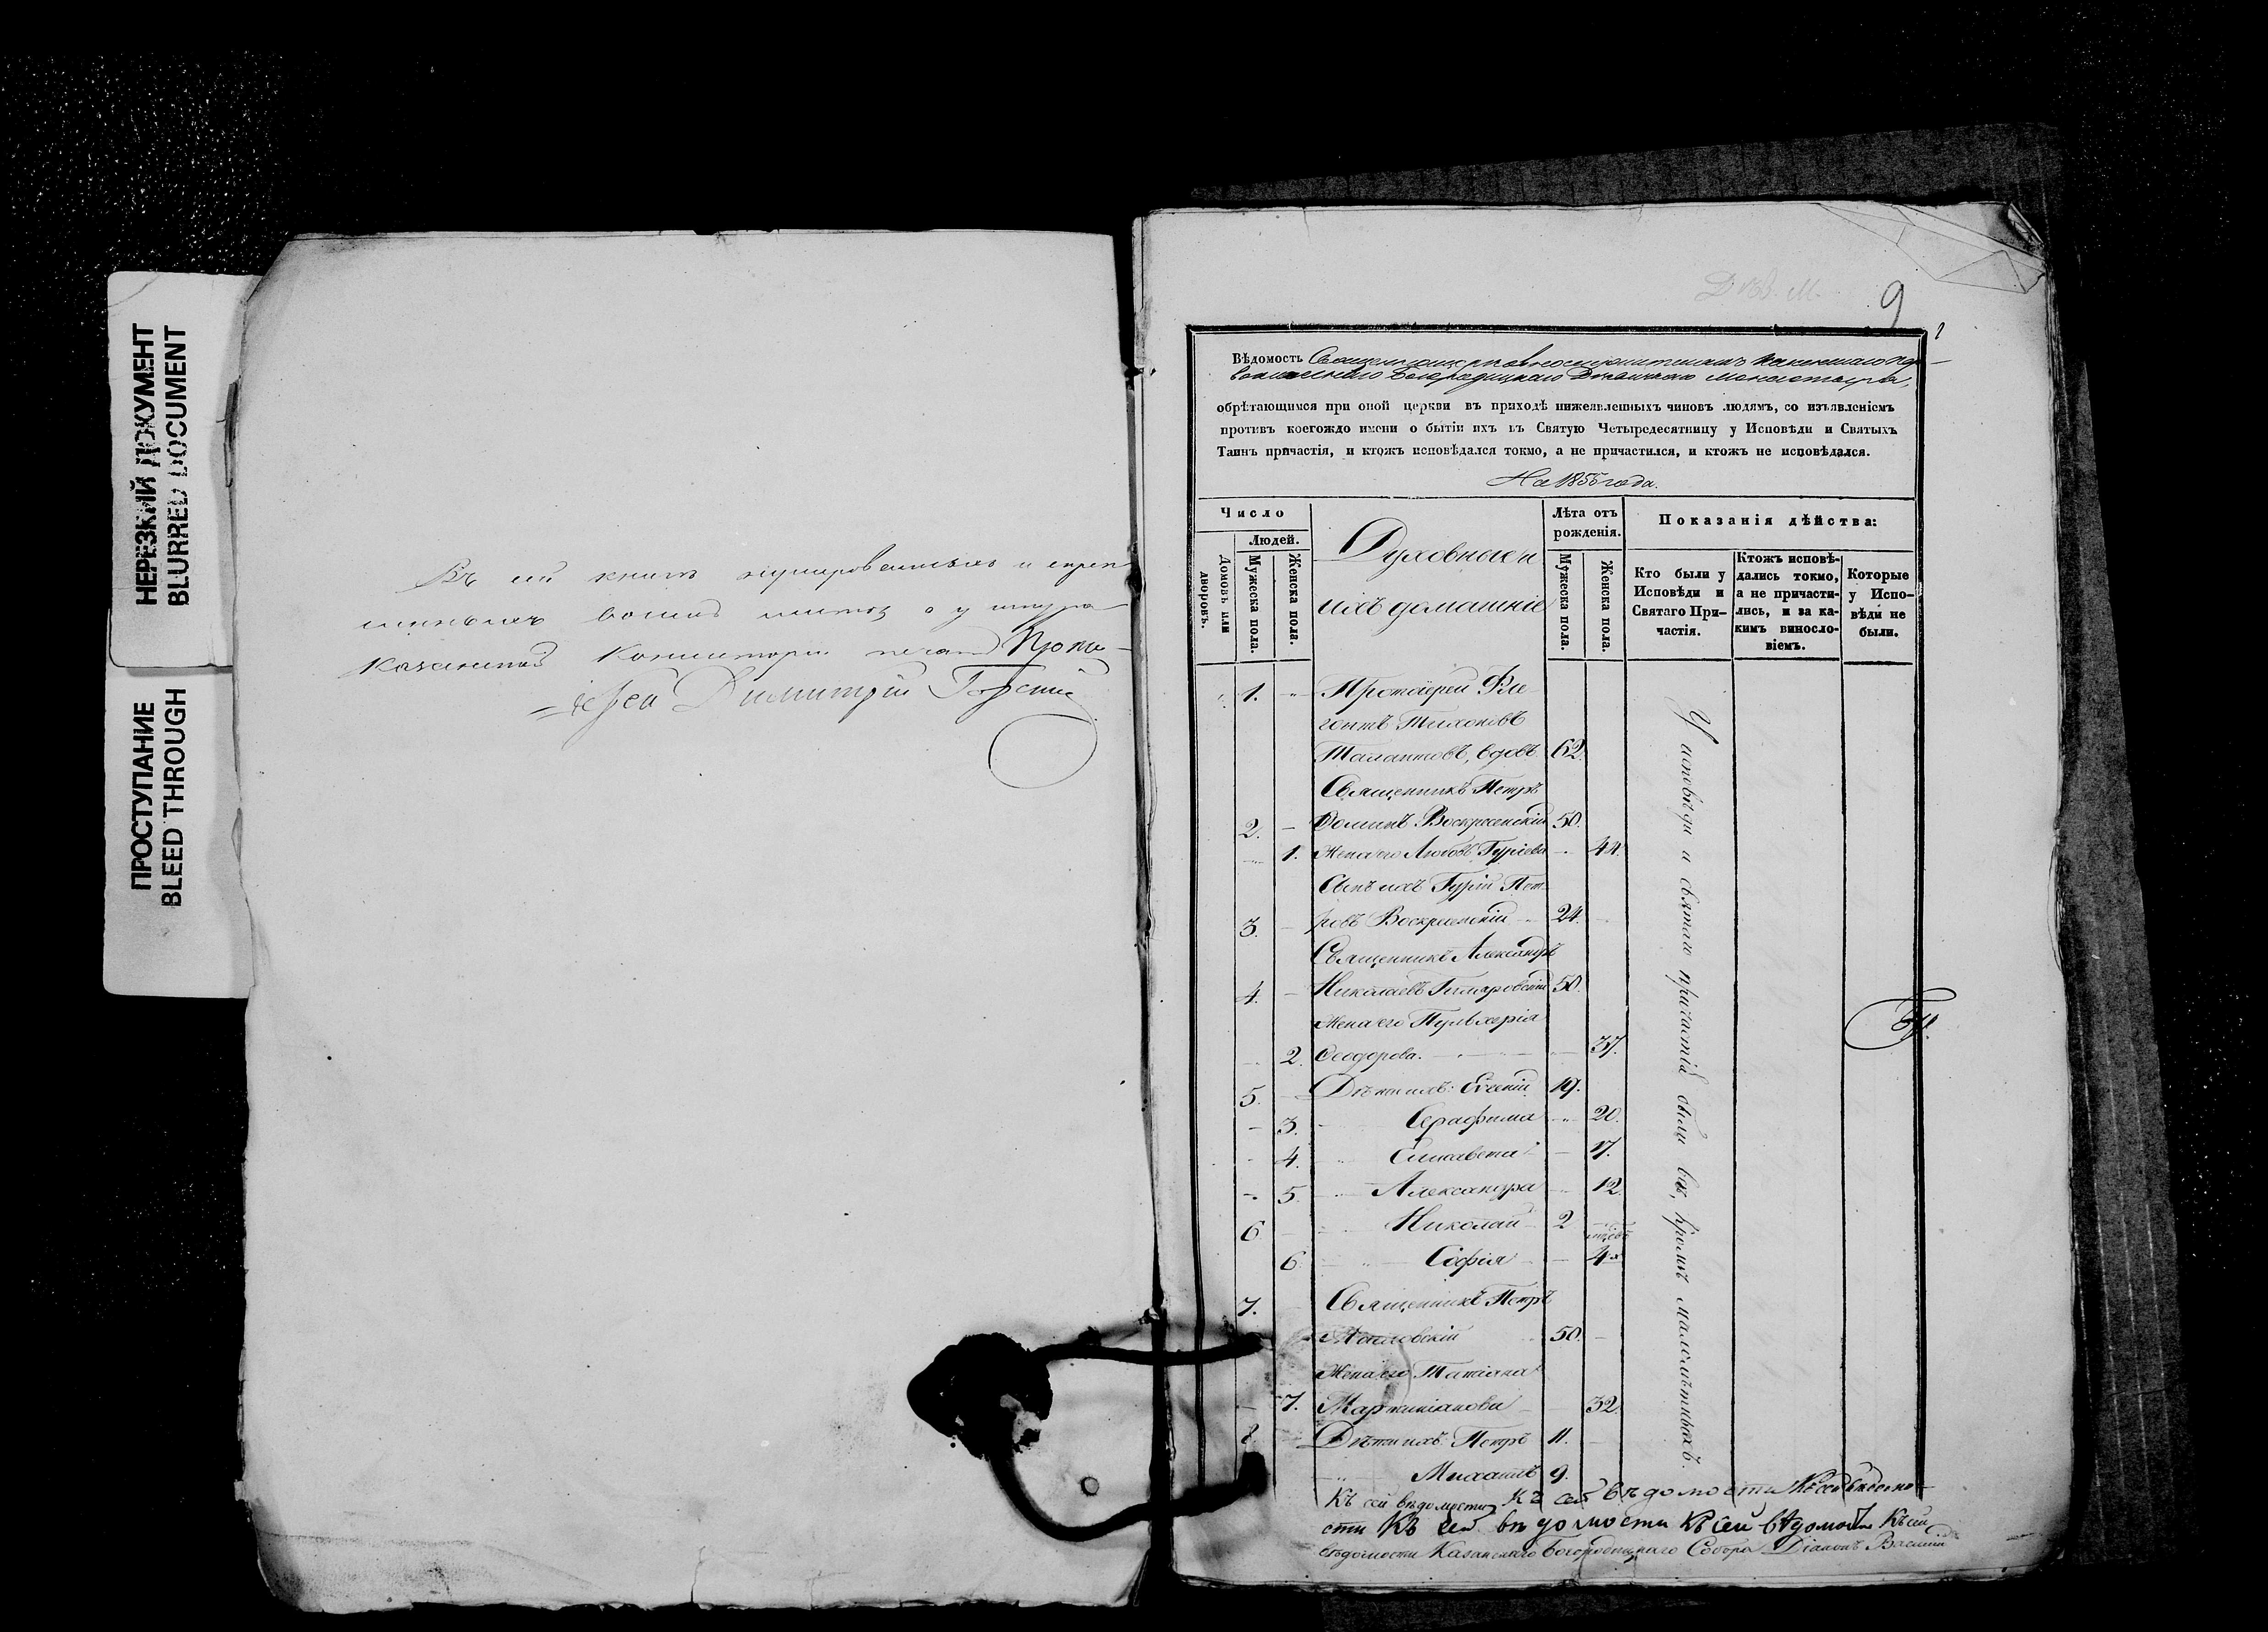 НЕРЕЗКИЙ ДОКУМЕНТ
BLURRED DOCUMENT
ПРОСТУПАНИЕ
BLEED THROUGH
Въ сей книгѣ нумерованныхъ и скреп
ленныхъ восемь листовъ а у шнура
Казанской Консисторіи печать Прото-
=іерей Димитрій
9
Вѣдомость
Богородицкаго Дѣвичьяго монастыря,
обрѣтающимся при оной церкви въ приходѣ нижеявленныхъ чиновъ людямъ, со изъявленіемъ
противъ коегождо имени о бытіи ихъ въ Святую Четыредесятницу у Исповѣди и Святыхъ
Таинъ причастія, и ктожъ исповѣдался токмо, а не причастился, и ктожъ не исповѣдался.
На 1855 года.
Число
Домовъ или дворовъ.
Людей.
Мужеска пола.
Женска пола.
Духовные и
ихъ домашніе
Лѣта отъ рожденія.
Мужеска пола.
Женска пола.
Показанія дѣйства:
Кто были у Исповѣди и Святаго При-частія.
Ктожъ исповѣ-дались токмо, а не причасти-лись, и за ка-кимъ винослο-віемъ.
Которые у Испо-вѣди не были.
1. Протоіерей Фле-
гонтъ Тихоновъ
Талантовъ, вдовъ 62.
Священникъ Петръ
2. Фоминъ Воскресенскій 50.
1. Жена его Любовь Гуріева 44.
Сынъ ихъ Гурій Пет-
3. ровъ Воскресенскій 24.
Священникъ Александръ
4. Николаевъ Гиляровскій 50.
Жена его Пульхерія
2. Феодорова. 37.
5. Дѣти ихъ: Евгеній 19.
3. Серафима 20.
4. Елисавета 17.
5. Александра 12.
6. Николай 2
6. Софія 4
7. Священникъ Петръ
50.
Жена его Татіана
7. Мартиніанова 32.
8. Дѣти ихъ: Петръ 11.
Михаилъ 9.
У исповѣди и святаго причастія были всѣ, кромѣ малолѣтныхъ.
Къ сей вѣдомости Къ сей вѣдомости Къ сей вѣдомо-
сти Къ сей вѣдомости Къ сей вѣдомости Къ сей
вѣдомости Казанскаго Богородицкаго Собора Діаконъ Василій